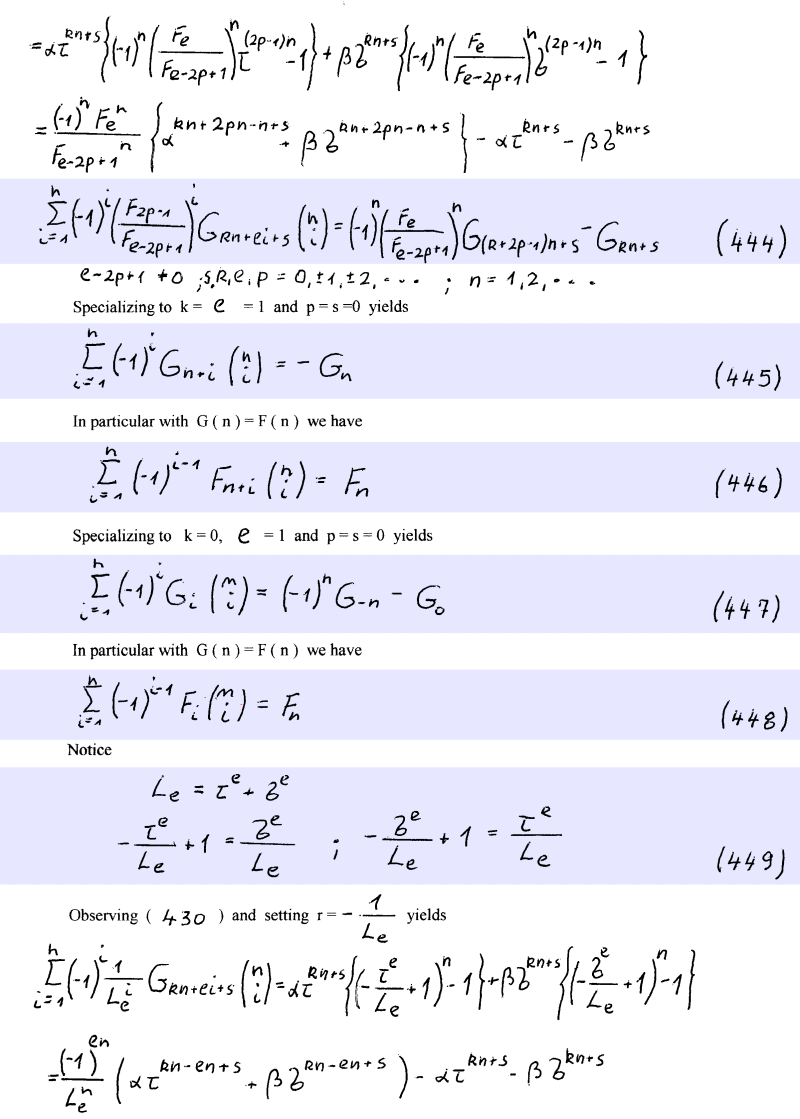 = ατ^{kn+s} {(-1)^n (F_e / F_{e-2p+1})^n τ^{(2p-1)n} - 1} + β϶^{kn+s} {(-1)^n (F_e / F_{e-2p+1})^n ϶^{(2p-1)n} - 1}
= (-1)^n F_e^n / F_{e-2p+1}^n {α^{kn+2pn-n+s} + β϶^{kn+2pn-n+s}} - ατ^{kn+s} - β϶^{kn+s}
Σ_{i=1}^n (-1)^i (F_{2p-1} / F_{e-2p+1})^i G_{kn+ei+s} (n i) = (-1)^n (F_e / F_{e-2p+1})^n G_{(k+2p-1)n+s} - G_{kn+s} (444)
e-2p+1 ≠ 0 ; s, k, e, p = 0, ±1, ±2, . . . ; n = 1, 2, . . .
Specializing to k = e = 1 and p = s =0 yields
Σ_{i=1}^n (-1)^i G_{n+i} (n i) = - G_n (445)
In particular with G ( n ) = F ( n ) we have
Σ_{i=1}^n (-1)^{i-1} F_{n+i} (n i) = F_n (446)
Specializing to k = 0, e = 1 and p = s = 0 yields
Σ_{i=1}^n (-1)^i G_i (n i) = (-1)^n G_{-n} - G_0 (447)
In particular with G ( n ) = F ( n ) we have
Σ_{i=1}^n (-1)^{i-1} F_i (n i) = F_n (448)
Notice
L_e = τ^e + ϶^e
- τ^e / L_e + 1 = ϶^e / L_e ; - ϶^e / L_e + 1 = τ^e / L_e (449)
Observing ( 430 ) and setting r = - 1 / L_e yields
Σ_{i=1}^n (-1)^i 1 / L_e^i G_{kn+ei+s} (n i) = ατ^{kn+s} {(- τ^e / L_e + 1)^n - 1} + β϶^{kn+s} {(- ϶^e / L_e + 1)^n - 1}
= (-1)^{en} / L_e^n (ατ^{kn-en+s} + β϶^{kn-en+s}) - ατ^{kn+s} - β϶^{kn+s}